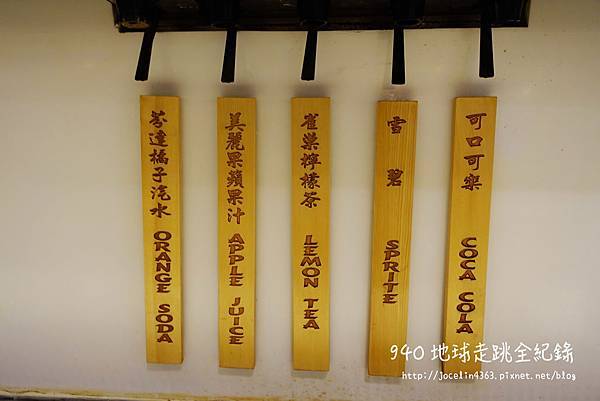 芬達橘子汽水 ORANGE SODA
美麗果蘋果汁 APPLE JUICE
雀巢檸檬茶 LEMON TEA
雪碧 SPRITE
可口可樂 COCA COLA
940 地球走跳全紀錄
http://jocelin4363.pixnet.net/blog